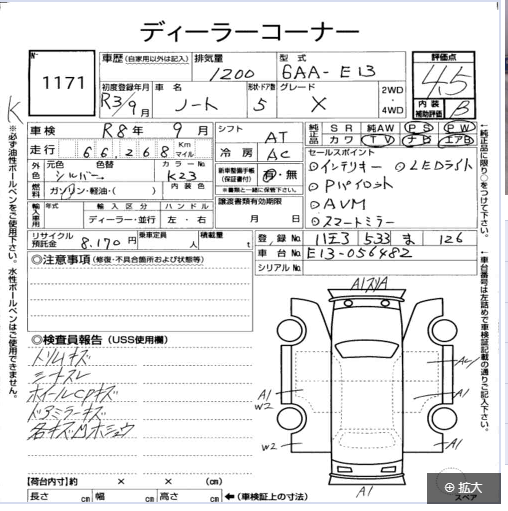 ディーラーコーナー
No. 1171
車歴(自家用以外は記入) 排気量 1200 型式 6AA-E13
評価点 4.5
内装補助評価 B
初度登録年月 R3/9月 車名 ノート 形状・ドア数 5 グレード X 2WD・4WD
K
車検 R8年 9月
シフト AT
純正品 SR 純AW PS PW
カワ TV ナビ エアB
走行 66,268 Km マイル
冷房 AC
セールスポイント
◎インテリキー ◎LEDライト
◎Pパイロット
◎AVM
◎スマートミラー
外色 元色 シルバー 色替 カラーNo. K23
新車整備手帳(保証書付) 有・無
※書類と一緒に保管下さい。
燃料 ガソリン・軽油・( ) 内装色
輸入車用 年式 輸入区分 ハンドル
ディーラー・並行 左・右
譲渡書類有効期限
月 日
リサイクル預託金 8,170円 乗車定員 人 積載量 t
登録No. 533 ま 126
車台No. E13-056482
シリアルNo.
◎注意事項(修復・不具合箇所および状態等)
◎検査員報告(USS使用欄)
トリムキズ
シートスレ
ホイールCPキズ
ドアミラーキズ
【荷台内寸】約 × × (cm)
長さ cm 幅 cm 高さ cm ←(車検証上の寸法)
A1
W2
A1
W2
A1
A1
スペア
拡大
※必ず油性ボールペンをご使用下さい。水性ボールペンはご使用できません。
↑純正品に限り○をつけて下さい。
↑車台番号は左詰めで車検証記載の通りご記入下さい。